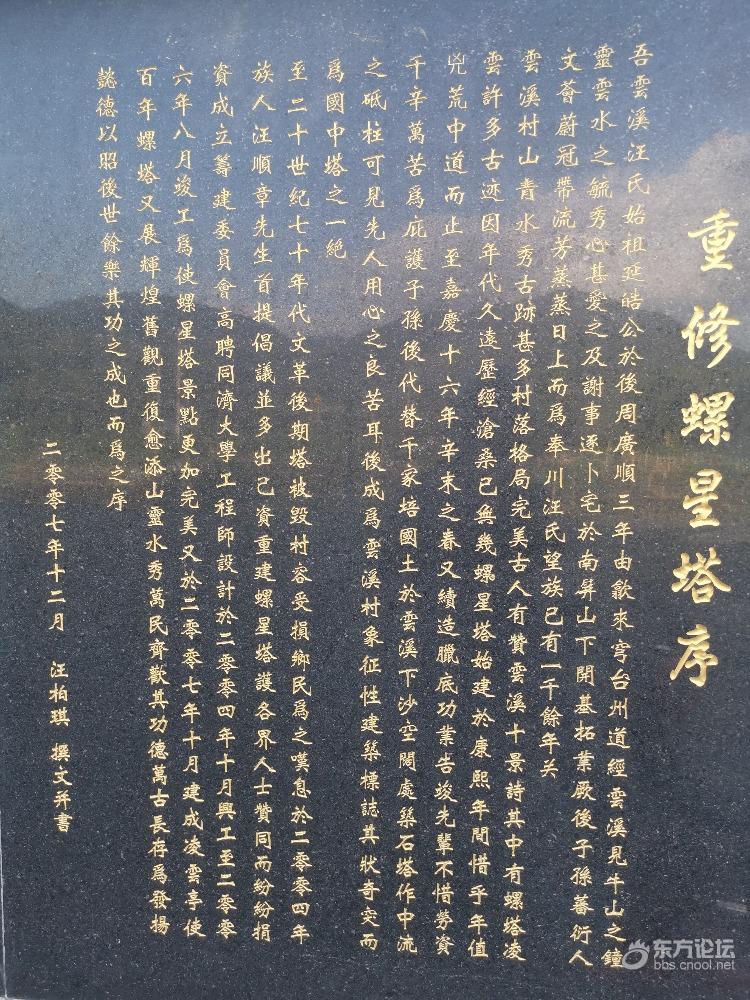 重修螺星塔序
吾雲溪汪氏始祖延皓公於後周廣順三年由歙來穹台州道經雲溪見牛山之鐘
靈雲水之毓秀心甚愛之及謝事逐卜宅於南屏山下開基拓業厥後子孫蕃衍人
文薈蔚冠帶流芳蒸蒸日上而爲奉川汪氏望族已有一千餘年矣
雲溪村山青水秀古跡甚多村落格局完美古人有贊雲溪十景詩其中有螺塔凌
雲許多古迹因年代久遠歷經滄桑已無幾螺星塔始建於康熙年間惜乎年值
兇荒中道而止至嘉慶十六年辛未之春又續造臘底功業告竣先輩不惜勞資
千辛萬苦爲庇護子孫後代替千家培國土於雲溪下沙空闊處築石塔作中流
之砥柱可見先人用心之良苦耳後成爲雲溪村象征性建築標誌其狀奇突而
爲國中塔之一絶
至二十世紀七十年代文革後期塔被毀村容受損鄉民爲之嘆息於二零零四年
族人汪順章先生首提倡議並多出己資重建螺星塔護各界人士贊同而紛紛捐
資成立籌建委員會高聘同濟大學工程師設計於二零零四年十月興工至二零零
六年八月竣工爲使螺星塔景點更加完美又於二零零七年十月建成凌雲亭使
百年螺塔又展輝煌舊觀重復愈添山靈水秀萬民齊歡其功德萬古長存爲發揚
懿德以昭後世餘樂其功之成也而爲之序
二零零七年十二月 汪柏琪 撰文并書
东方论坛
bbs.cnool.net